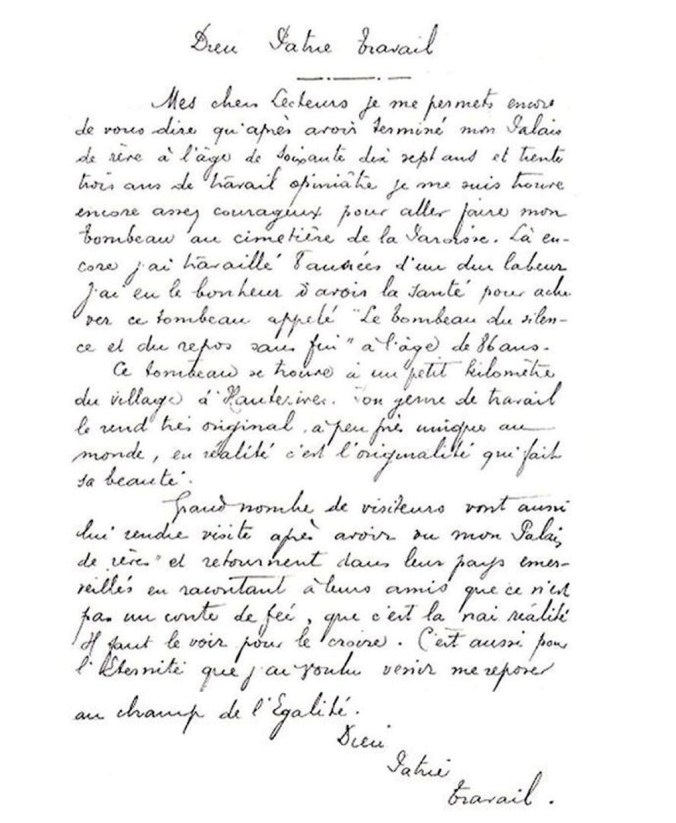 Dieu Patrie Travail
Mes chers Lecteurs je me permets encore
de vous dire qu'après avoir terminé mon Palais
de rêve à l'âge de soixante dix sept ans et trente
trois ans de travail opiniâtre je me suis trouvé
encore assez courageux pour aller faire mon
tombeau au cimetière de la Paroisse. Là en-
core j'ai travaillé 8 années d'un dur labeur
J'ai eu le bonheur d'avoir la santé pour ache
ver ce tombeau appelé "Le tombeau du silen-
ce et du repos sans fin" à l'âge de 86 ans.
Ce tombeau se trouve à un petit kilomètre
du village à Hauterives. Son genre de travail
le rend très original, à peu près unique au
monde, en réalité c'est l'originalité qui fait
sa beauté.
Grand nombre de visiteurs vont aussi
lui rendre visite après avoir vu mon "Palais
de rêves" et retournent dans leur pays émer-
veillés en racontant à leurs amis que ce n'est
pas un conte de feé, que c'est la vrai réalité
Il faut le voir pour le croire. C'est aussi pour
l'Eternité que j'ai voulu venir me reposer
au champ de l'Egalité.
Dieu
Patrie
Travail.